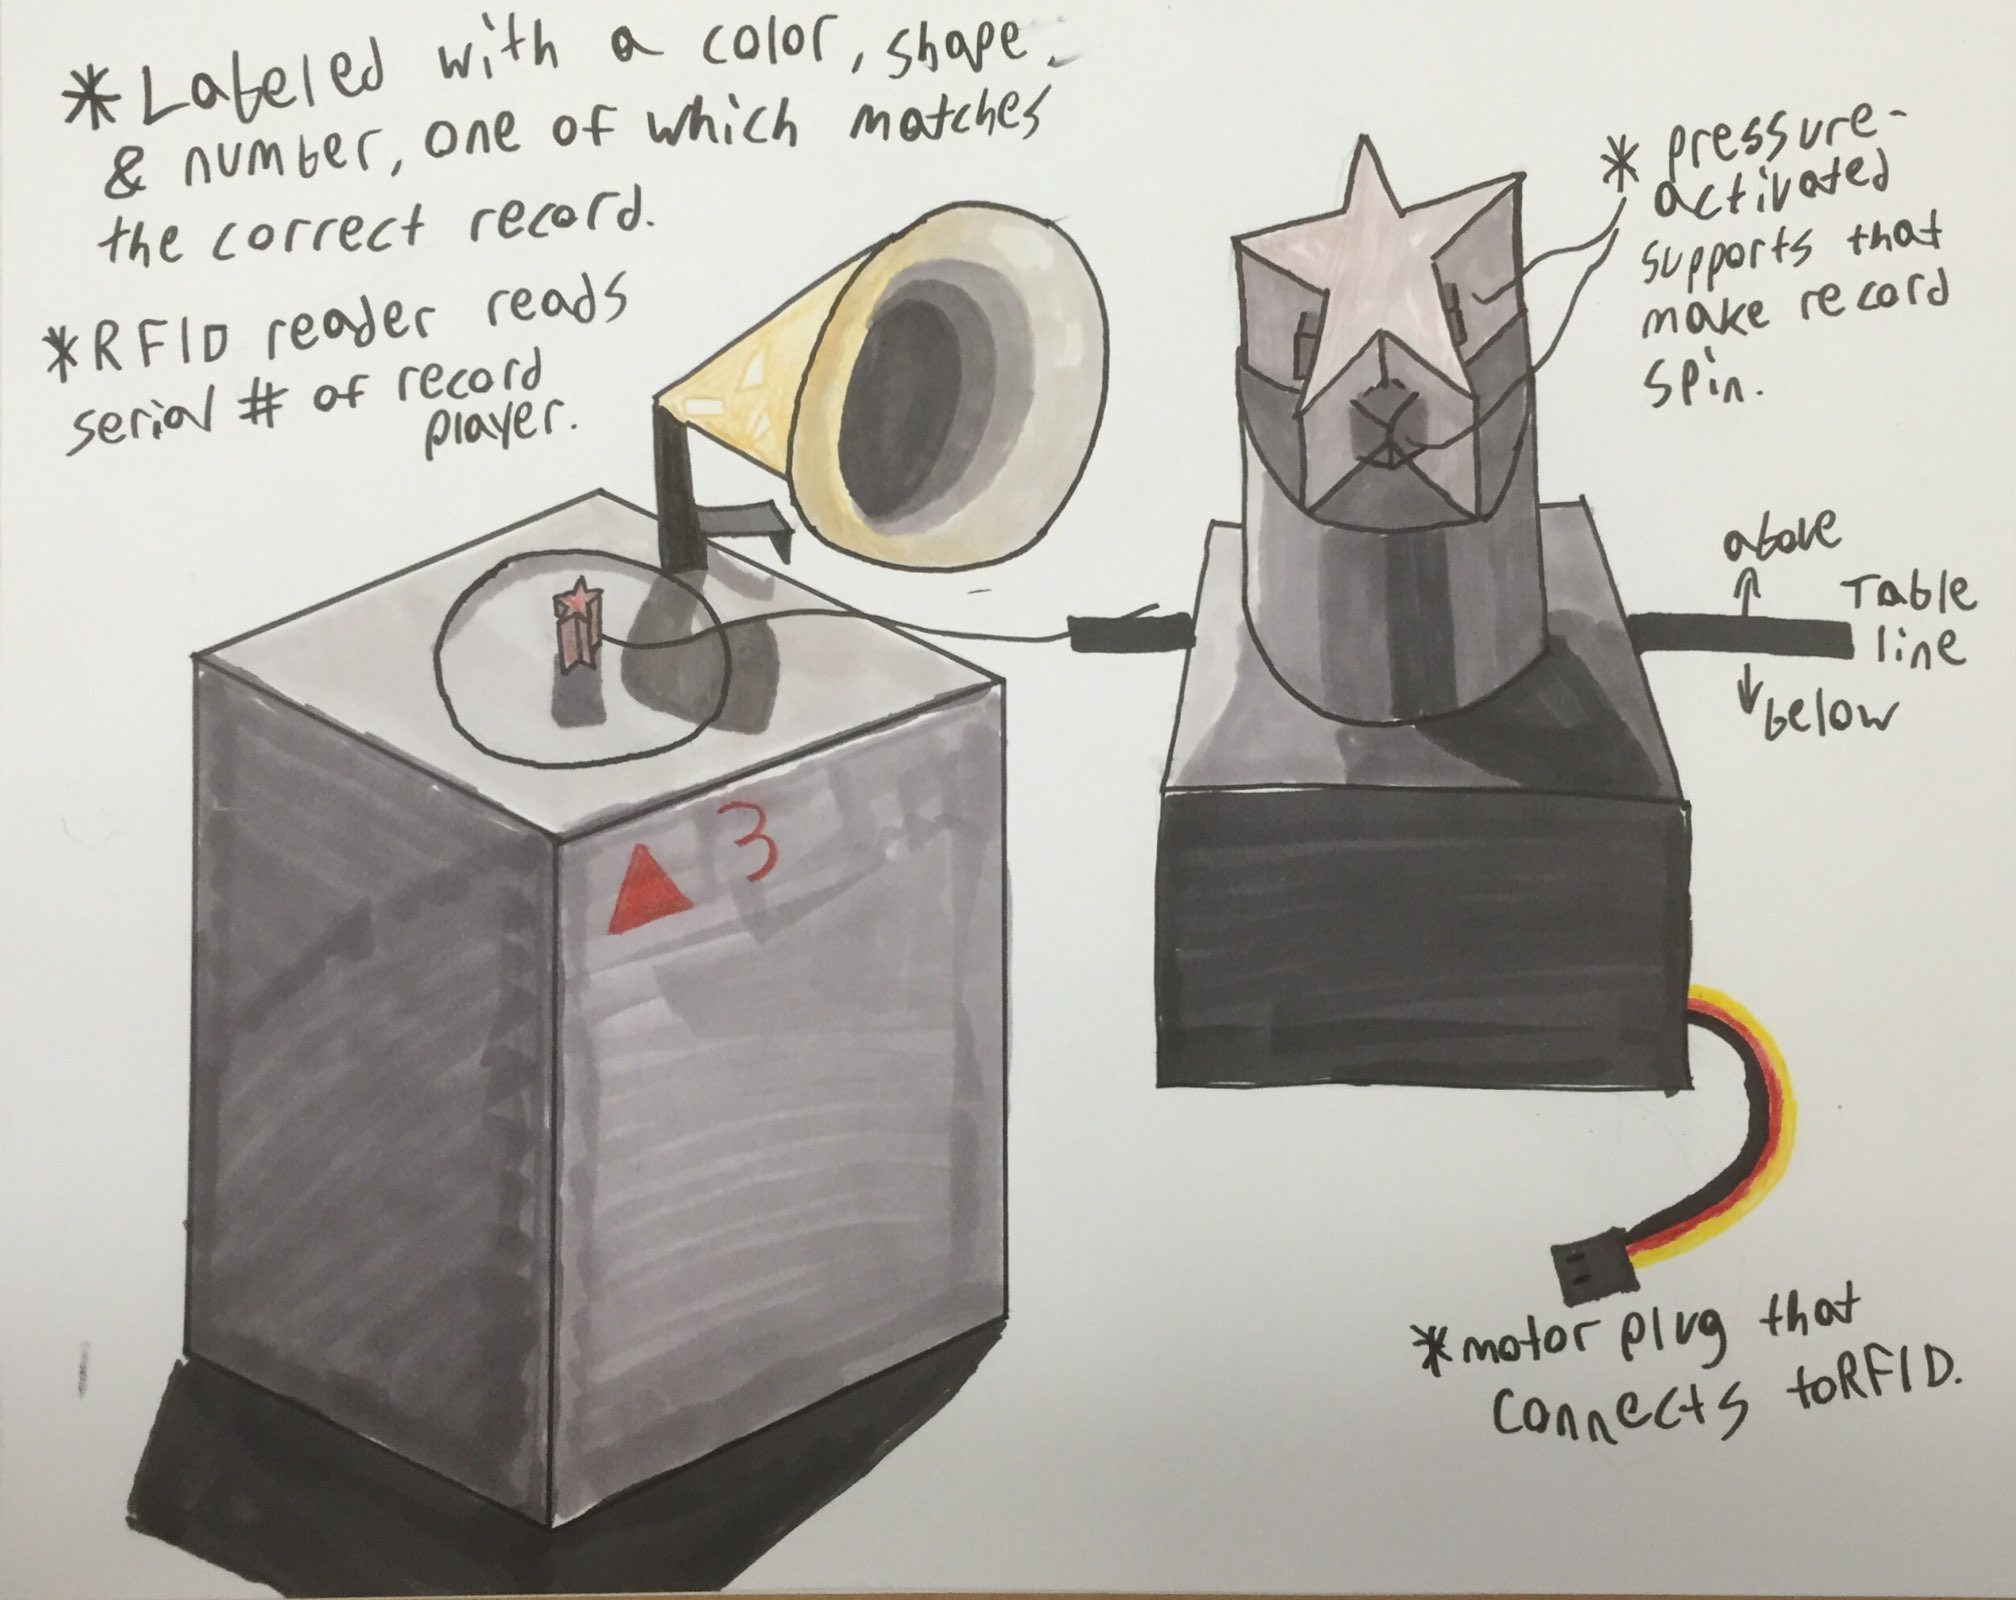 * Labeled with a color, shape
& number, one of which matches
the correct record.
* RFID reader reads
serial # of record
player.
* pressure-
activated
supports that
make record
spin.
above
Table
line
below
3
* motor plug that
connects to RFID.